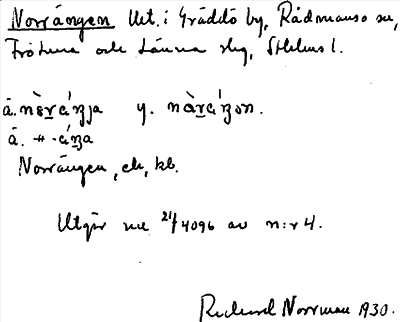 Norrängen Utt. i Gräddö by, Rådmansö sn,
Frötuna och Länna slg, Sthlms l.
å. nὲrά̱ŋja y. nàrάŋən.
å. -#- άŋa
Norrängen, ek, kb.
Utgör me 21/4096 av n:r 4.
Richard Norrman 1930.